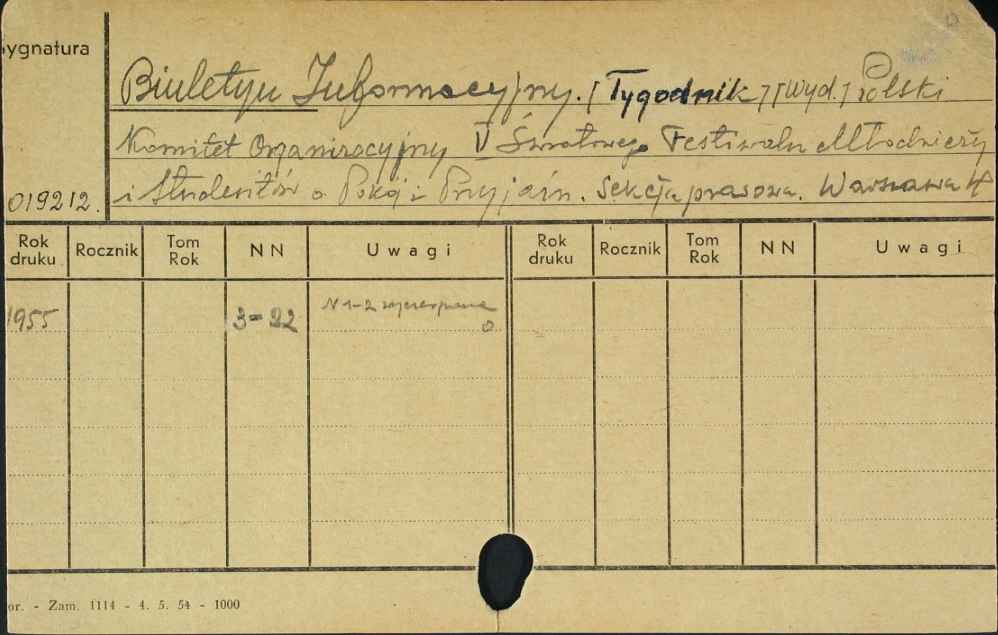 ygnatura
Biuletyn Informacyjny. [Tygodnik] [Wyd.] Polski
Komitet Organizacyjny V Światowego Festiwalu Młodzieży
019212. i Studentów o Pokój i Przyjaźń. Sekcja prasowa. Warszawa 4°
Rok druku Rocznik Tom Rok NN Uwagi Rok druku Rocznik Tom Rok NN Uwagi
1955 3-22 N 1-2 wyczerpane
or. - Zam. 1114 - 4. 5. 54 - 1000